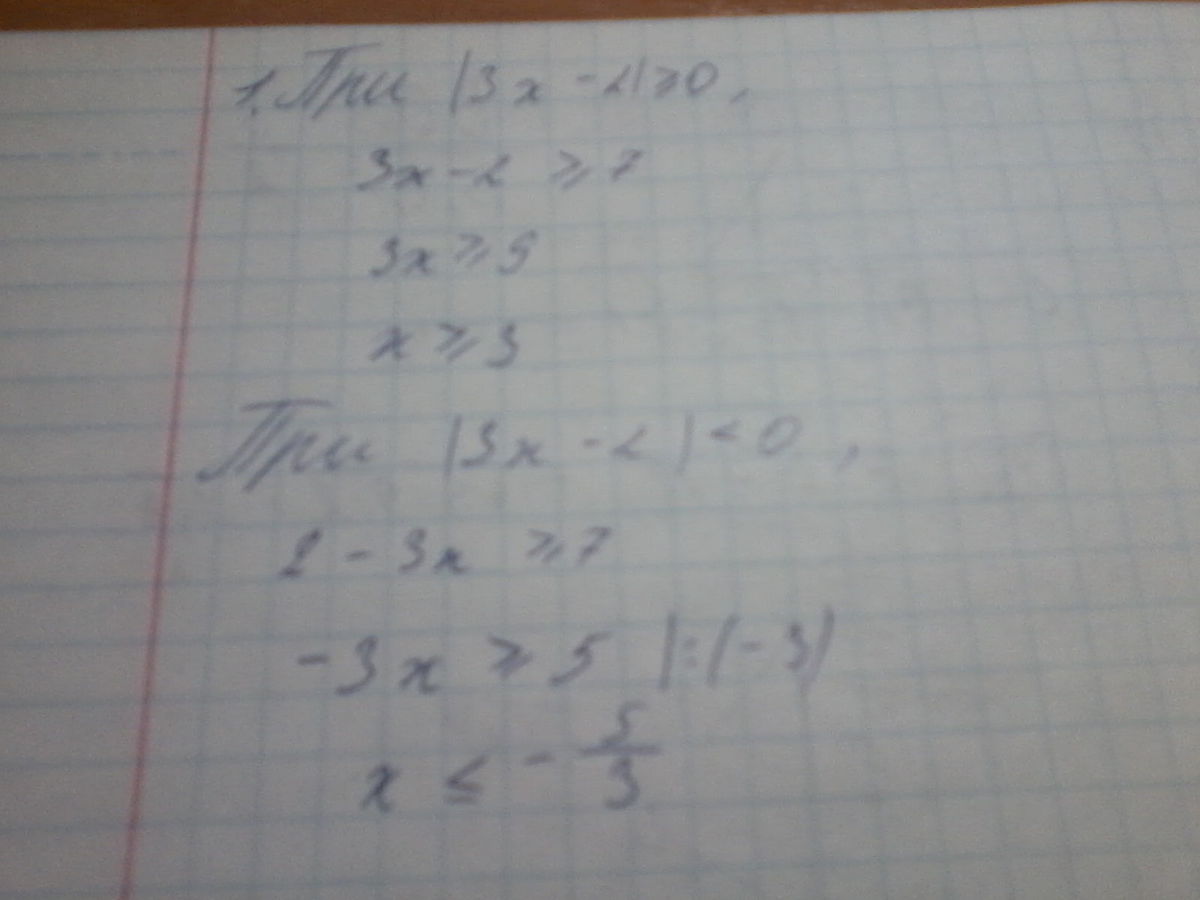 1. При |3x - 2| ⩾ 0,
3x - 2 ⩾ 7
3x ⩾ 9
x ⩾ 3
При |3x - 2| < 0,
2 - 3x ⩾ 7
-3x ⩾ 5 |:(-3)
x ≤ - 5/3